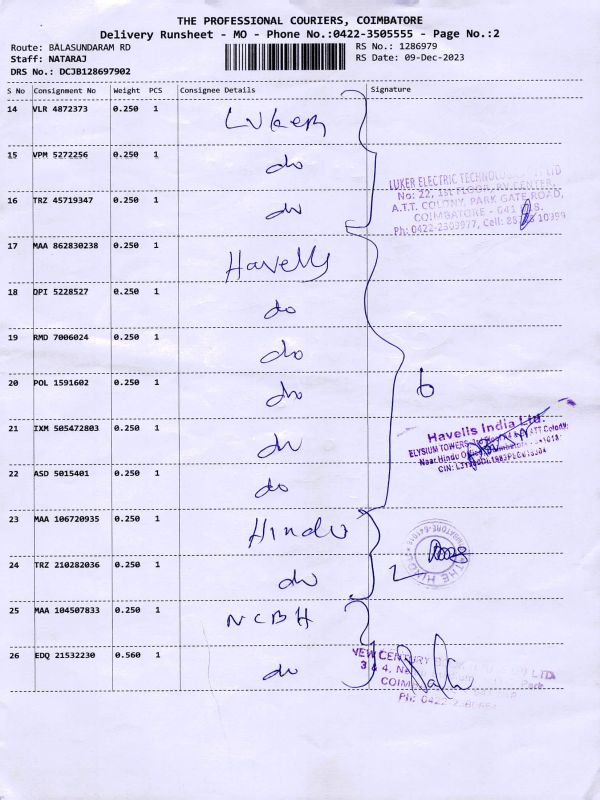 THE PROFESSIONAL COURIERS, COIMBATORE
Delivery Runsheet - MO - Phone No.:0422-3505555 - Page No.:2
Route: BALASUNDARAM RD
RS No.: 1286979
Staff: NATARAJ
RS Date: 09-Dec-2023
DRS No.: DCJB128697902
S No Consignment No Weight PCS Consignee Details Signature
14 VLR 4872373 0.250 1 Luker
15 VPM 5272256 0.250 1 do
LUKER ELECTRIC TECHNOLOGIES LTD
No: 22, 1ST FLOOR, RV CENTER,
16 TRZ 45719347 0.250 1 do
A.T.T. COLONY, PARK GATE ROAD,
COIMBATORE - 641
Ph: 0422-2303977, Cell:
17 MAA 862830238 0.250 1 Havells
18 DPI 5228527 0.250 1 do
19 RMD 7006024 0.250 1 do
20 POL 1591602 0.250 1 do
6
21 IXM 505472803 0.250 1 do
Havells India Ltd.
ELYSIUM TOWERS, ATT Colony,
Near Hindu Office
22 ASD 5015401 0.250 1 do
23 MAA 106720935 0.250 1 Hindu
THE HINDU
24 TRZ 210282036 0.250 1 do
2
25 MAA 104507833 0.250 1 NCBH
26 EDQ 21532230 0.560 1 do
NEW CENTURY LTD
3 & 4,